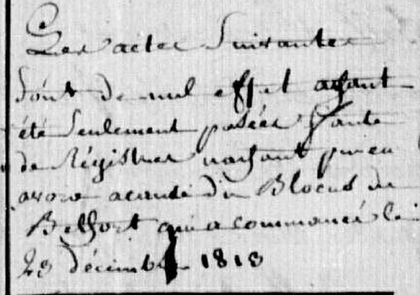 Les actes Suivantes
sont de nul effet ayant
été Seulement posées faute
de Régistres n'ayant pu en
avoir acause du Blocus de
Belfort qui a commancé le
23 décembre 1813